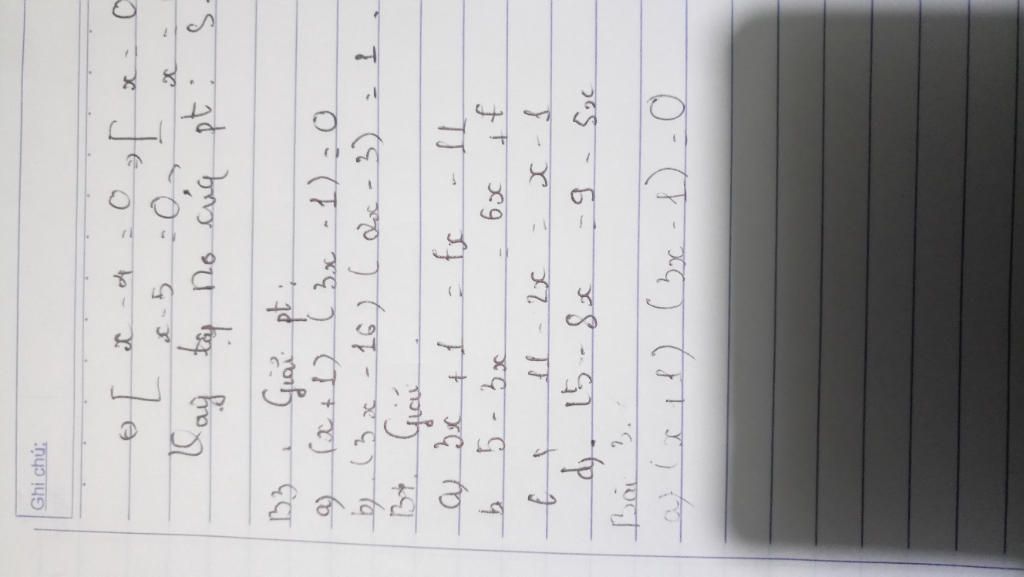 Ghi chú:
⇔ [ x - 4 = 0 => [ x = 0
x - 5 = 0, x =
Vậy tập no của pt: S.
B3. Giải pt:
a) (x+1) (3x - 1) = 0
b) (3x - 16) (2x - 3) = 1.
B4. Giải
a) 3x + 1 = 7x - 11
b 5 - 3x = 6x + 7
c, 11 - 2x = x - 1
d). 15 - 8x = 9 - 5x
Bài 3.
a) (x+1) (3x - 1) = 0